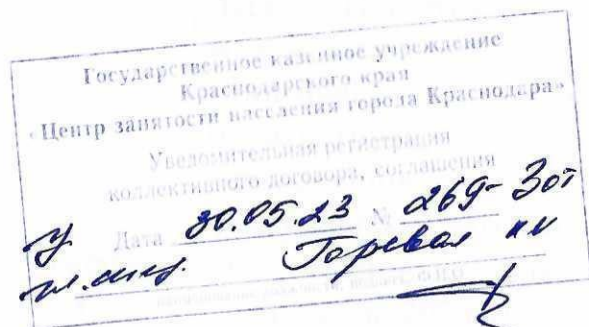 Государственное казенное учреждение
Краснодарского края
«Центр занятости населения города Краснодара»
Уведомительная регистрация
коллективного договора, соглашения
Дата 30.05.23 № 269-3от
гл. спец. Горевая